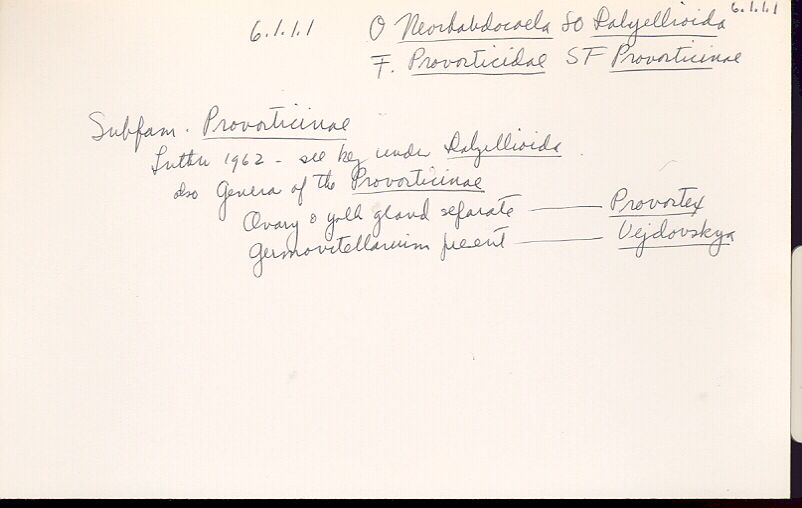 6.1.1.1
6.1.1.1 O Neorhabdocoela SO Dalyellioida
F. Provorticidae SF Provorticinae
Subfam. Provorticinae
Luther 1962 - see key under Dalyellioida.
also Genera of the Provorticinae
Ovary & yolk gland separate — Provortex
Germovitellarium present — Vejdovskya